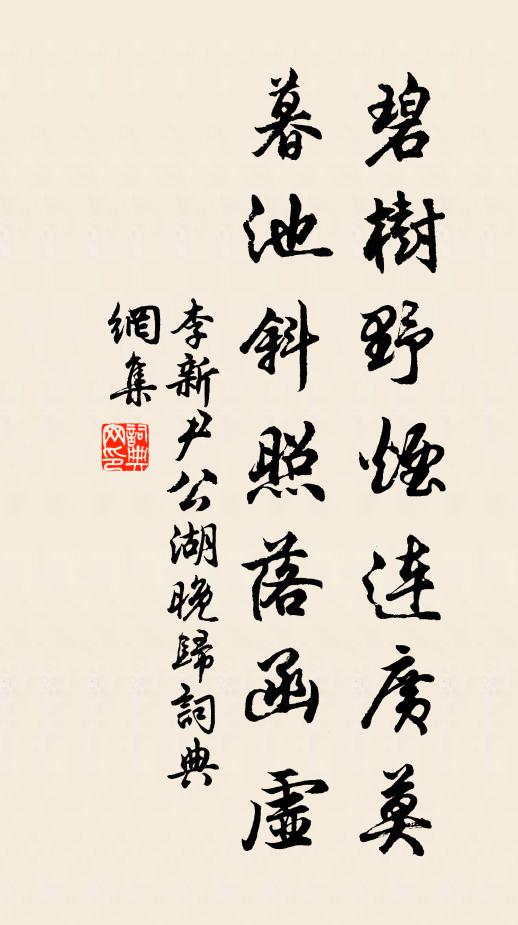 碧樹野煙連廣莫
暮池斜照落函虛
李新尹公湖晚歸詞典
網集
詞典
网印